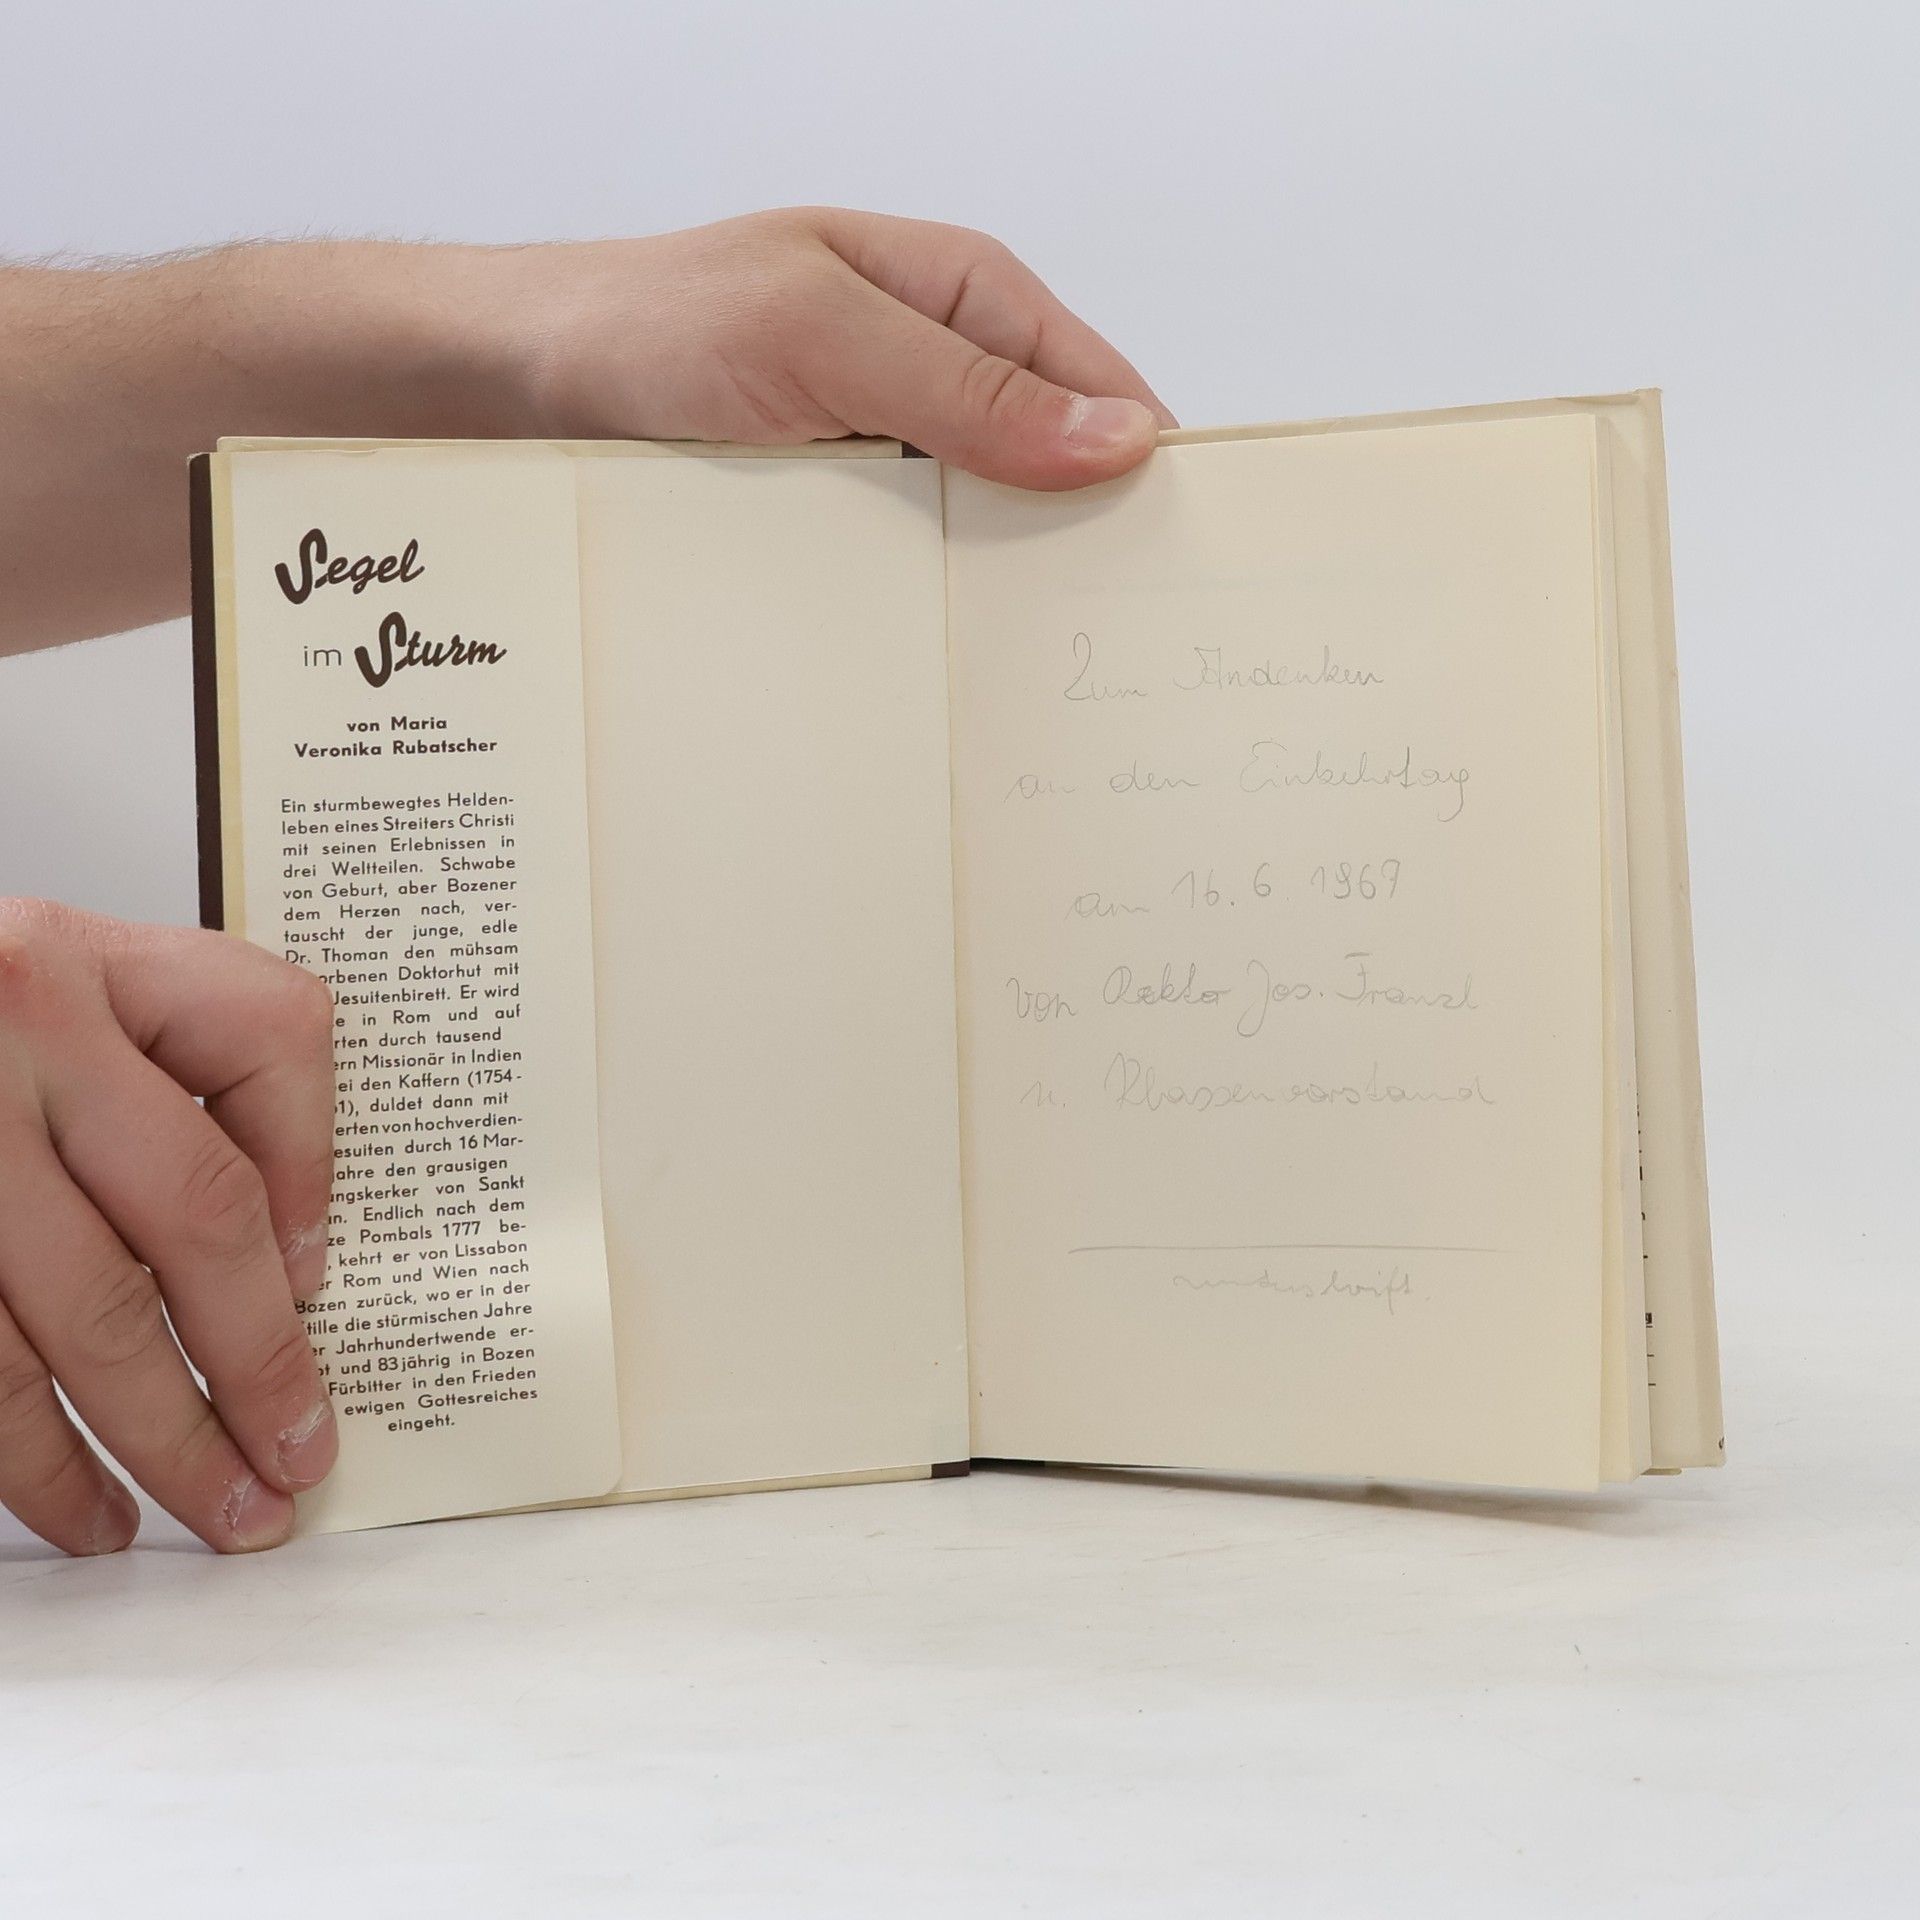 Segel
im Sturm
von Maria
Veronika Rubatscher
Ein sturmbewegtes Helden-
leben eines Streiters Christi
mit seinen Erlebnissen in
drei Weltteilen. Schwabe
von Geburt, aber Bozener
dem Herzen nach, ver-
tauscht der junge, edle
Dr. Thoman den mühsam
orbenen Doktorhut mit
Jesuitenbirett. Er wird
e in Rom und auf
rten durch tausend
ern Missionär in Indien
ei den Kaffern (1754-
1), duldet dann mit
erten von hochverdien-
esuiten durch 16 Mar-
ahre den grausigen
ngskerker von Sankt
n. Endlich nach dem
ze Pombals 1777 be-
, kehrt er von Lissabon
er Rom und Wien nach
Bozen zurück, wo er in der
tille die stürmischen Jahre
er Jahrhundertwende er-
bt und 83jährig in Bozen
Fürbitter in den Frieden
ewigen Gottesreiches
eingeht.
Zum Andenken
an den Einkehrtag
am 16. 6. 1967
von Rektor Jos. Franzl
u. Klassenvorstand